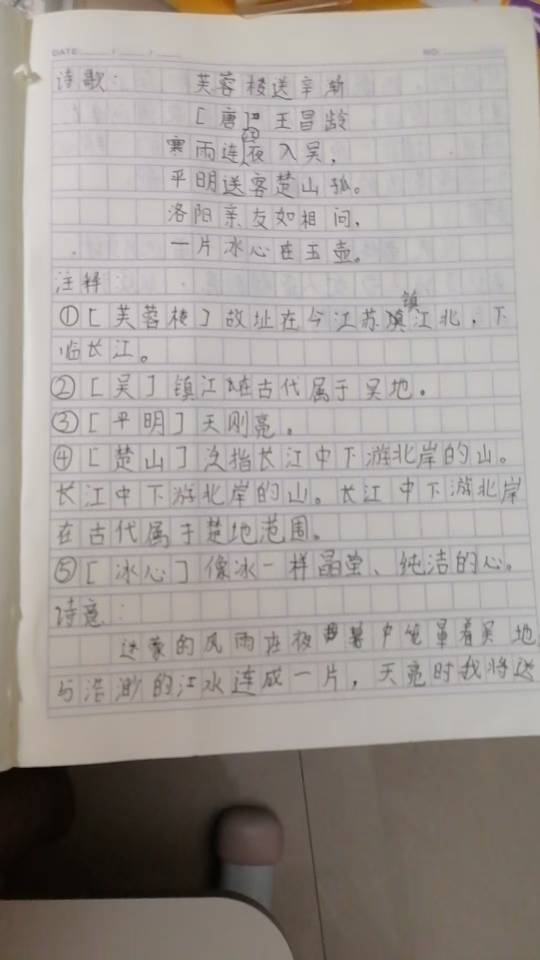 DATE / /
NO.
诗歌：芙蓉楼送辛渐
[唐] 王昌龄
寒雨连夜入吴，
平明送客楚山孤。
洛阳亲友如相问，
一片冰心在玉壶。
注释：
①[芙蓉楼]故址在今江苏镇江北，下
临长江。
②[吴]镇江在古代属于吴地。
③[平明]天刚亮。
④[楚山]泛指长江中下游北岸的山。
长江中下游北岸的山。长江中下游北岸
在古代属于楚地范围。
⑤[冰心]像冰一样晶莹、纯洁的心。
诗意：
迷蒙的风雨在夜幕中笼罩着吴地
与浩渺的江水连成一片，天亮时我将送